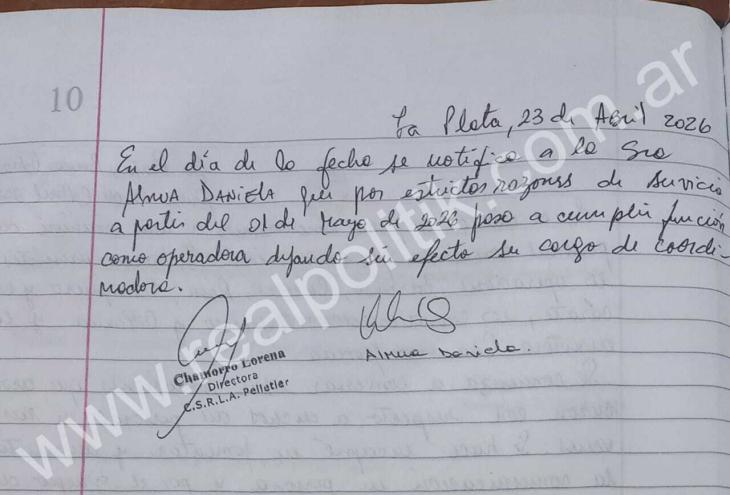 10
La Plata, 23 de Abril 2026
En el día de la fecha se notifica a la Sra
Almua Daniela que por estrictos razones de servicio
a partir del 01 de Mayo de 2026 paso a cumplir función
como operadora dejando sin efecto su cargo de coordi-
nadora.
Almua Daniela.
Chamorro Lorena
Directora
C.S.R.L.A. Pelletier
www.realpolitik.com.ar